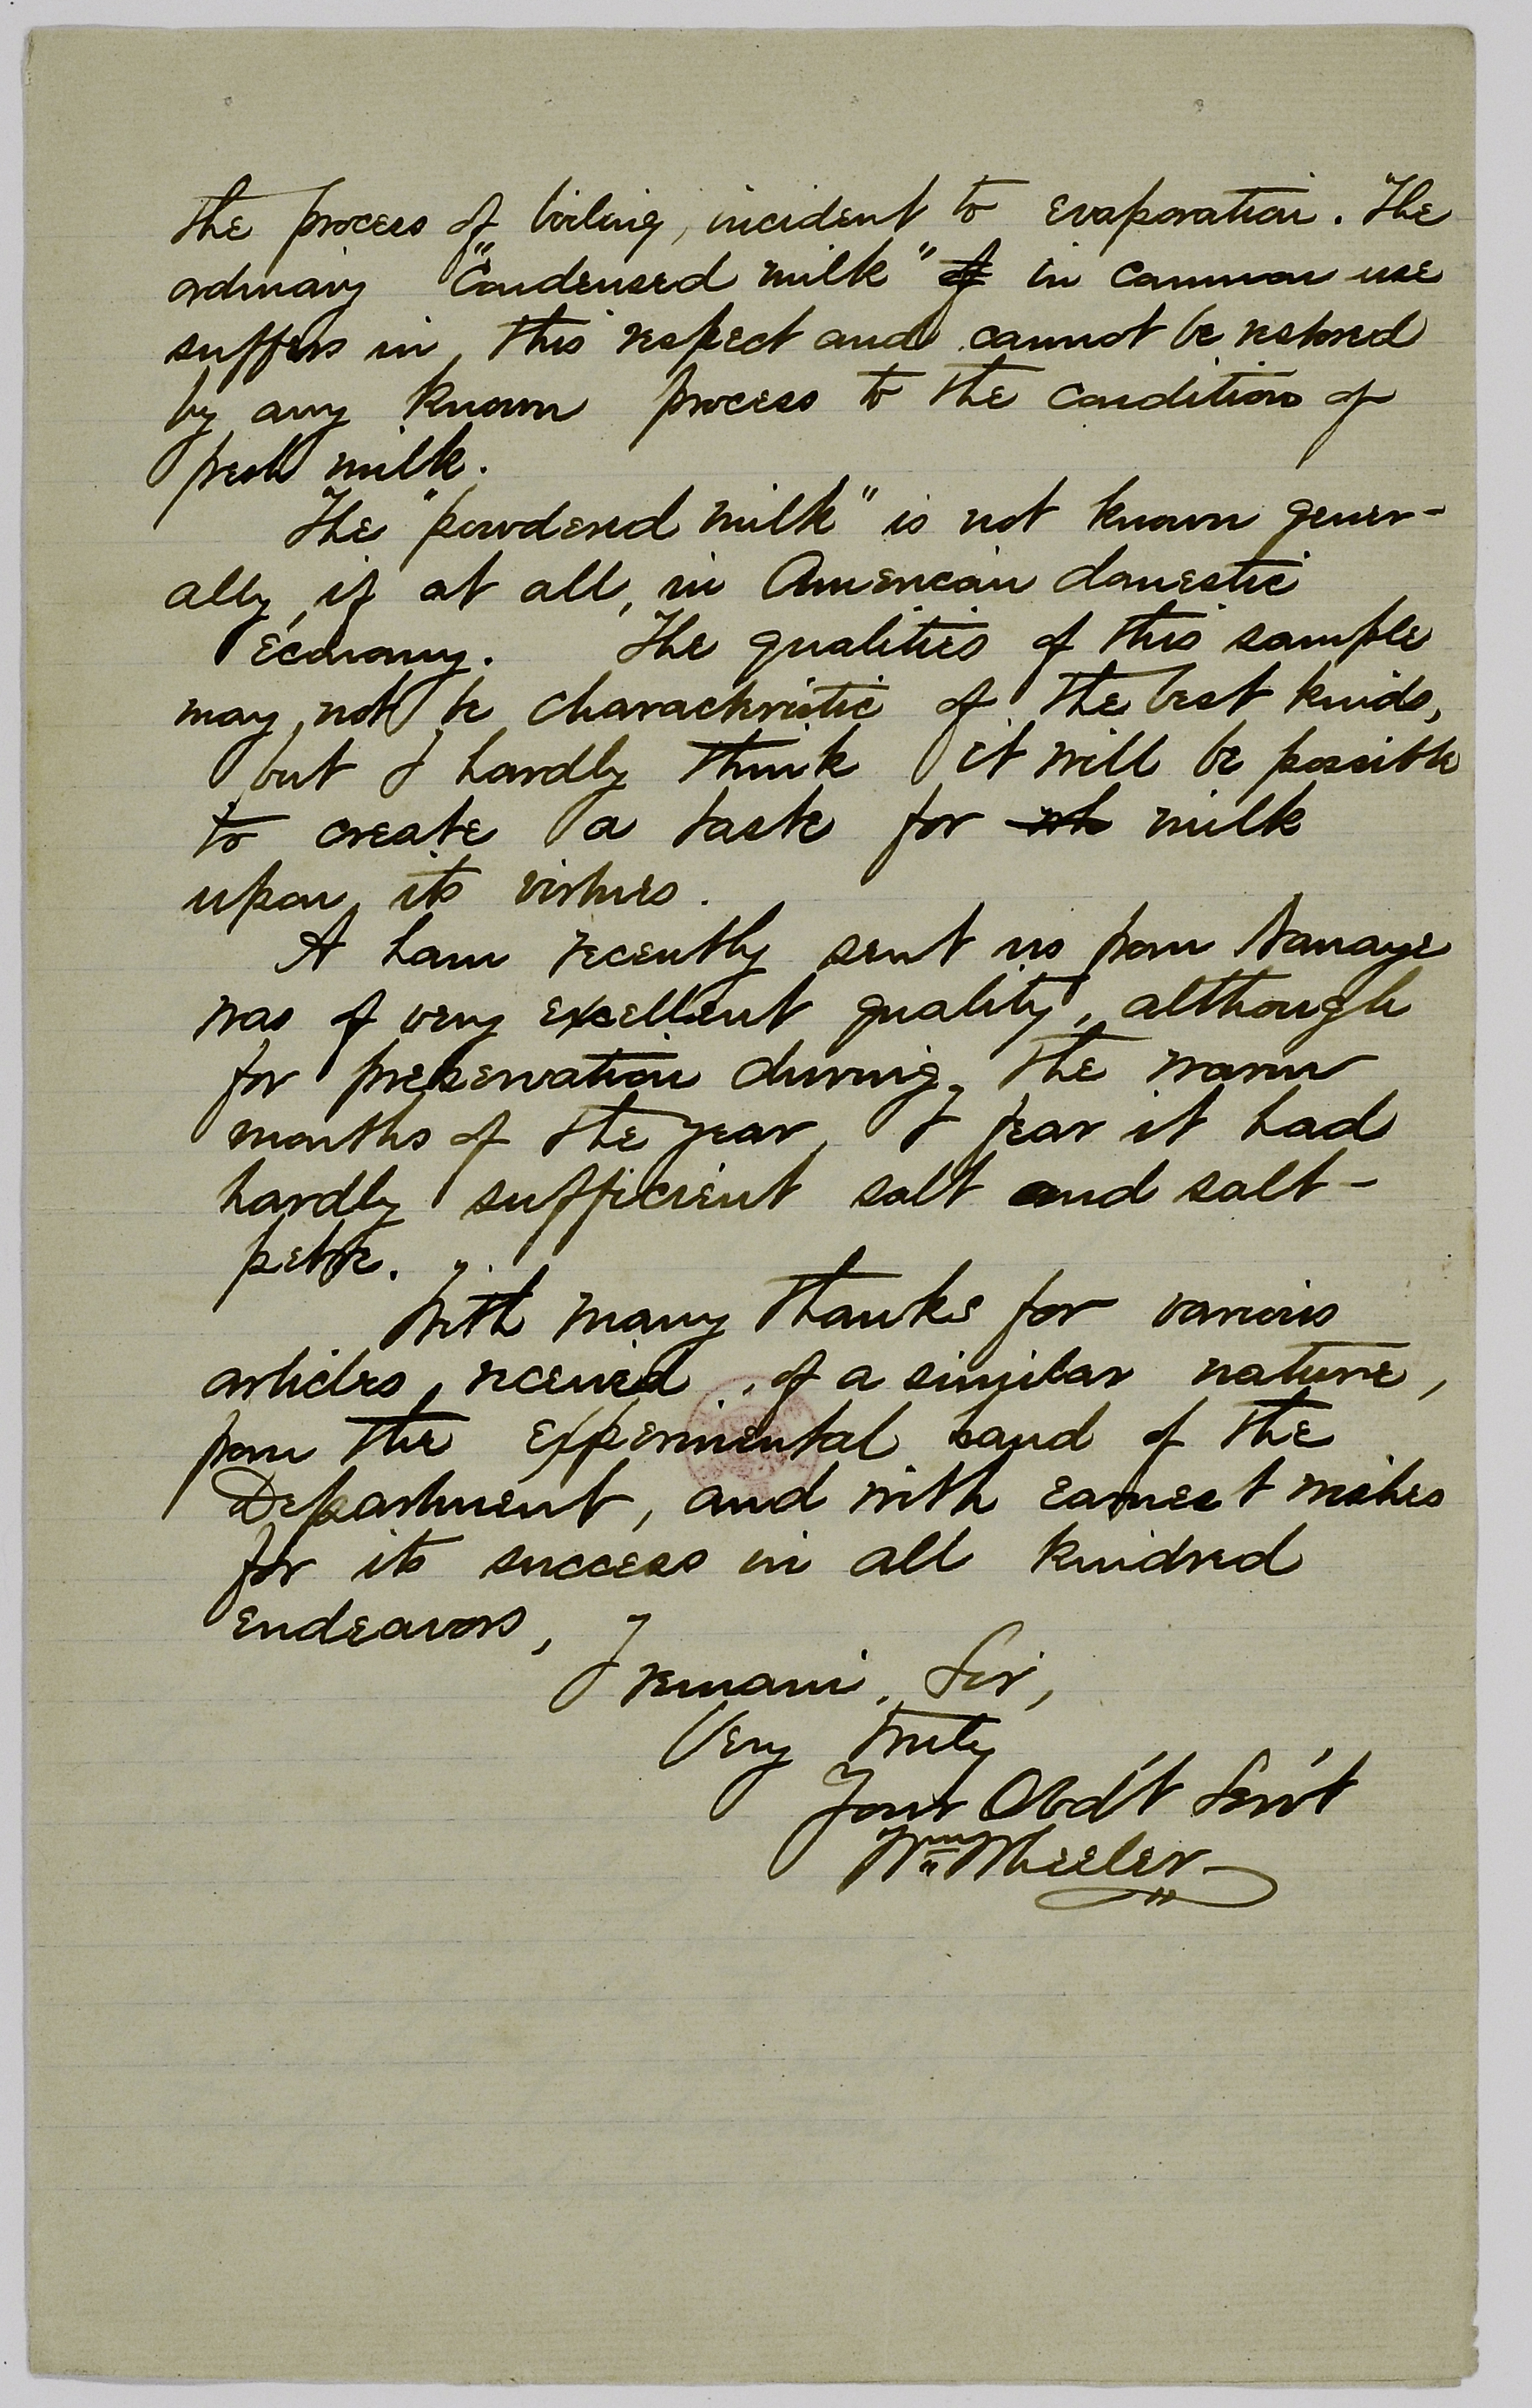 the process of boiling, incident to evaporation. The
ordinary "Condensed milk" of in common use
suffers in this respect and cannot be restored
by any known process to the condition of
fresh milk.
The "powdered milk" is not known gener-
ally, if at all, in American domestic
economy. The qualities of this sample
may not be characteristic of the best kinds,
but I hardly think it will be possible
to create a taste for milk
upon its virtues.
A ham recently sent us from Nanaye
was of very excellent quality, although
for preservation during the warm
months of the year, I fear it had
hardly sufficient salt and salt-
petre.
With many thanks for various
articles, received, of a similar nature,
from the experimental hand of the
Department, and with earnest wishes
for its success in all kindred
endeavors,
I remain, Sir,
Very truly
Your Obd't Serv't
Wm Wheeler